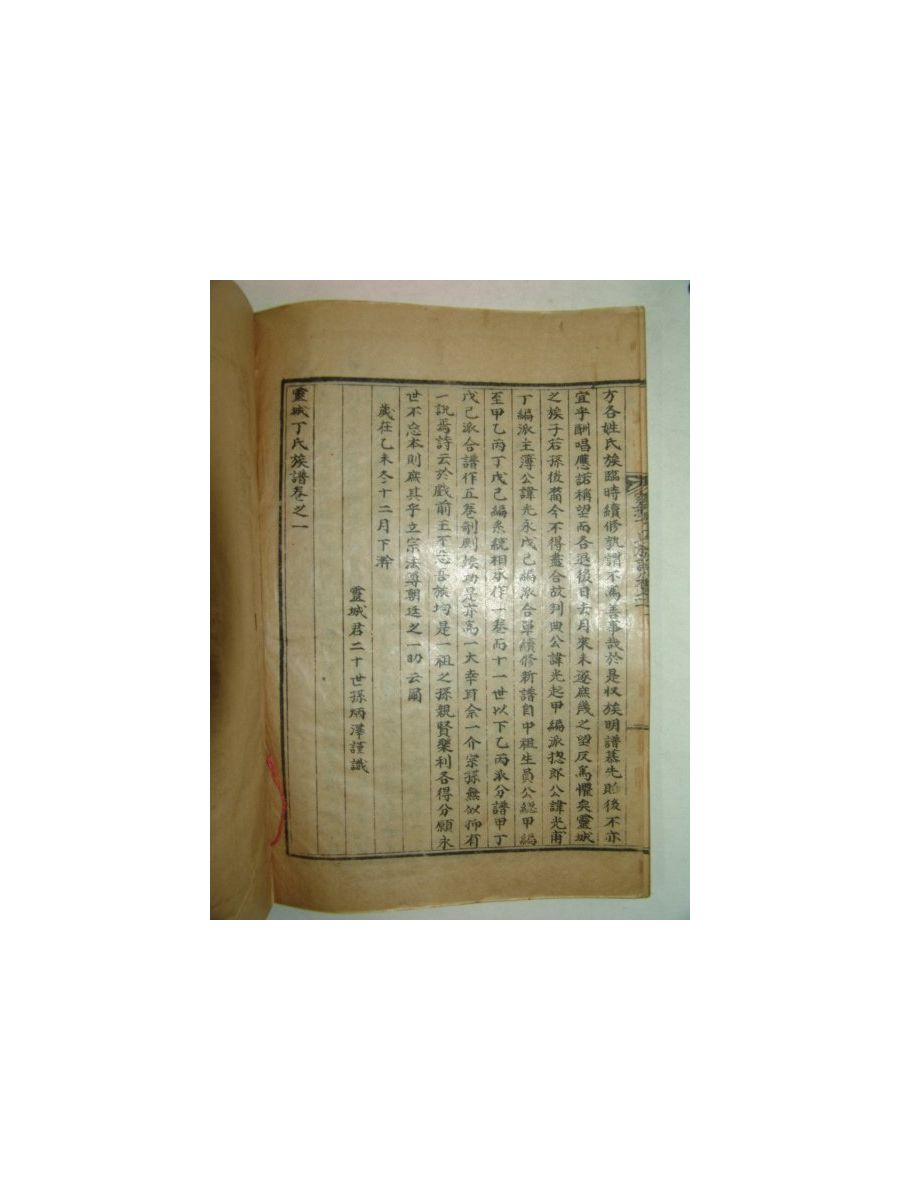 方各姓氏族臨時續修孰謂不爲善事哉於是収族明譜慕先貽後不亦
宜乎酬唱應諾稱望而各退後日去月來未遂庶幾之望反爲懼矣靈城
之族子若孫後裔今不得盡合故判典公諱光起甲編派摠郎公諱光甫
丁編派主簿公諱光永戊己編派合單續修新譜自中祖生員公総甲編
至甲乙丙丁戊己編系統相承作一巻而十一世以下乙丙派分譜甲丁
戊己派合譜作五巻剞劂竣功是亦爲一大幸耳余一介宗孫無似抑有
一説焉詩云於戲前王不忘吾族均是一祖之孫親賢樂利各得分願永
世不忘本則庶其乎立宗法尊朝廷之一助云爾
歲在乙未冬十二月下澣
靈城君二十世孫炳澤謹識
靈城丁氏族譜巻之一